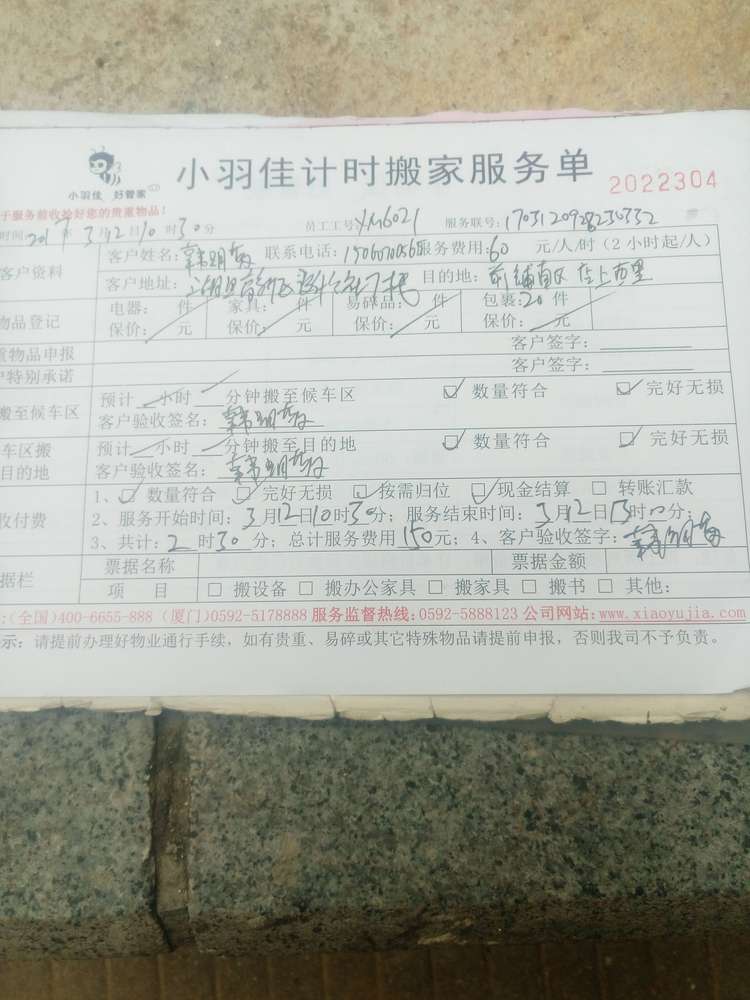 小羽佳计时搬家服务单
小羽佳 好管家
2022304
于服务前收拾好您的贵重物品!
时间:2017年3月12日10时30分 员工工号XM6021 服务联号:170312092823
客户资料 客户姓名: 联系电话: 服务费用:60元/人/时(2小时起/人)
客户地址: 目的地:
物品登记 电器: 件 家具: 件 易碎品: 件 包裹:20件
保价: 元 保价: 元 保价: 元 保价: 元
重物品申报 客户签字:
特别承诺 客户签字:
搬至候车区 预计 小时 分钟搬至候车区 ☑ 数量符合 ☑ 完好无损
客户验收签名:
车区搬 预计 小时 分钟搬至目的地 ☑ 数量符合 ☑ 完好无损
目的地 客户验收签名:
收付费 1、☑ 数量符合 ☑ 完好无损 ☑ 按需归位 ☑ 现金结算 □ 转账汇款
2、服务开始时间:3月12日10时30分;服务结束时间:3月12日13时00分;
3、共计:2时30分;总计服务费用150元;4、客户验收签字:
据栏 票据名称 票据金额
项 目 □ 搬设备 □ 搬办公家具 □ 搬家具 □ 搬书 □ 其他:
:(全国)400-6655-888(厦门)0592-5178888 服务监督热线:0592-5888123 公司网站:www.xiaoyujia.com
示:请提前办理好物业通行手续,如有贵重、易碎或其它特殊物品请提前申报,否则我司不予负责。